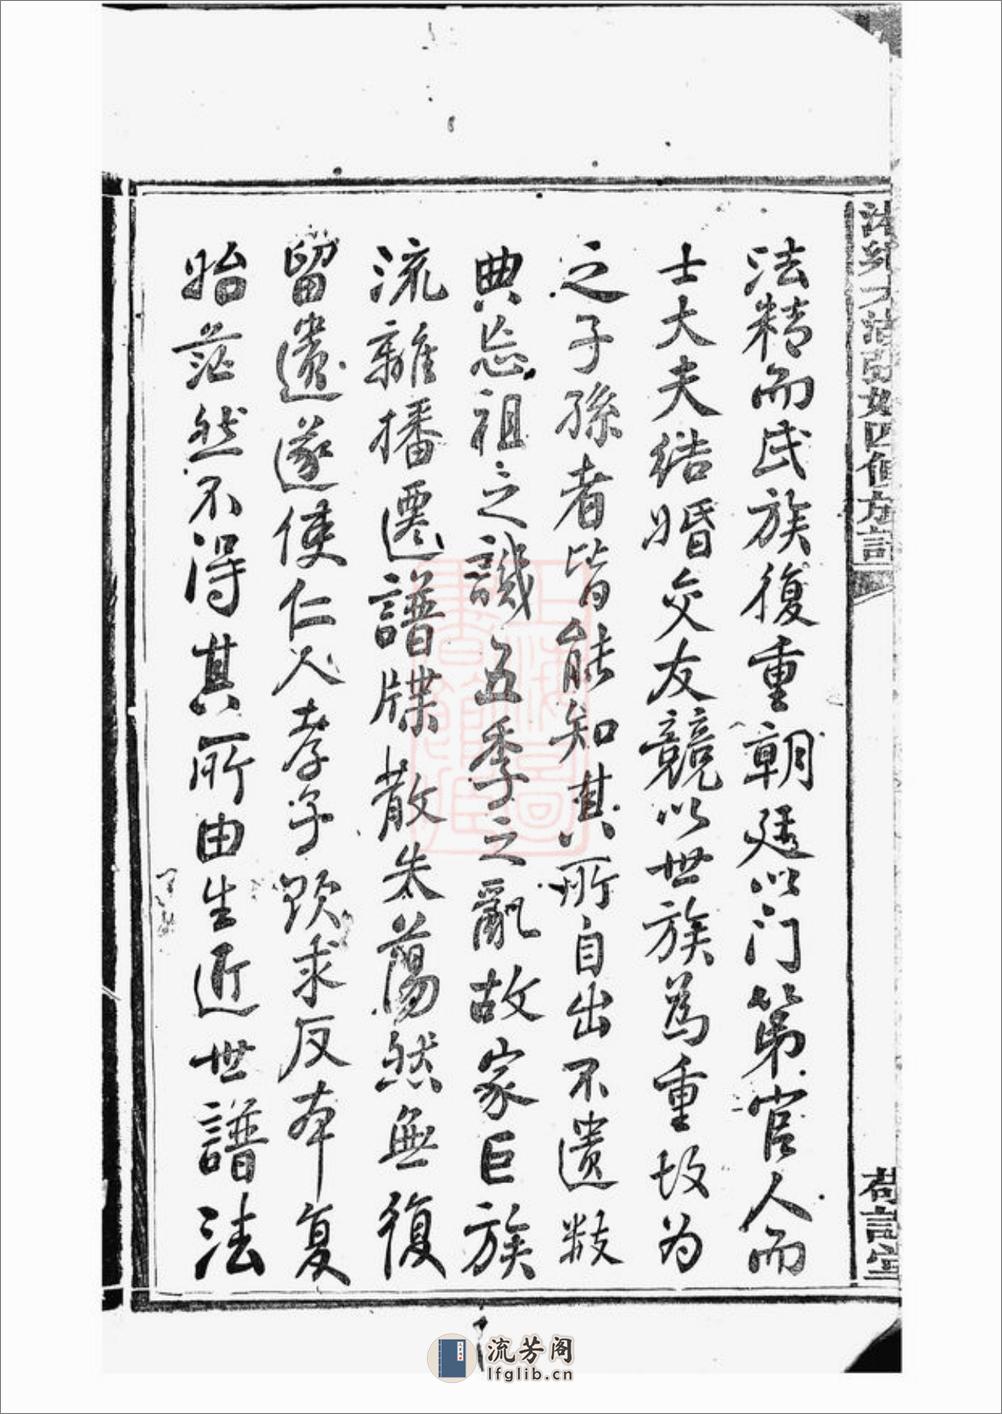 法精而氏族復重朝廷以门第官人而
士大夫结婚交友競以世族為重故为
之子孫者皆能知其所自出不遗数
典忘祖之譏五季之亂故家巨族
流離播遷譜牒散失蕩然無復
留遺遂使仁人孝子欲求反本复
始茫然不得其所由生近世譜法
流芳阁
lfglib.cn